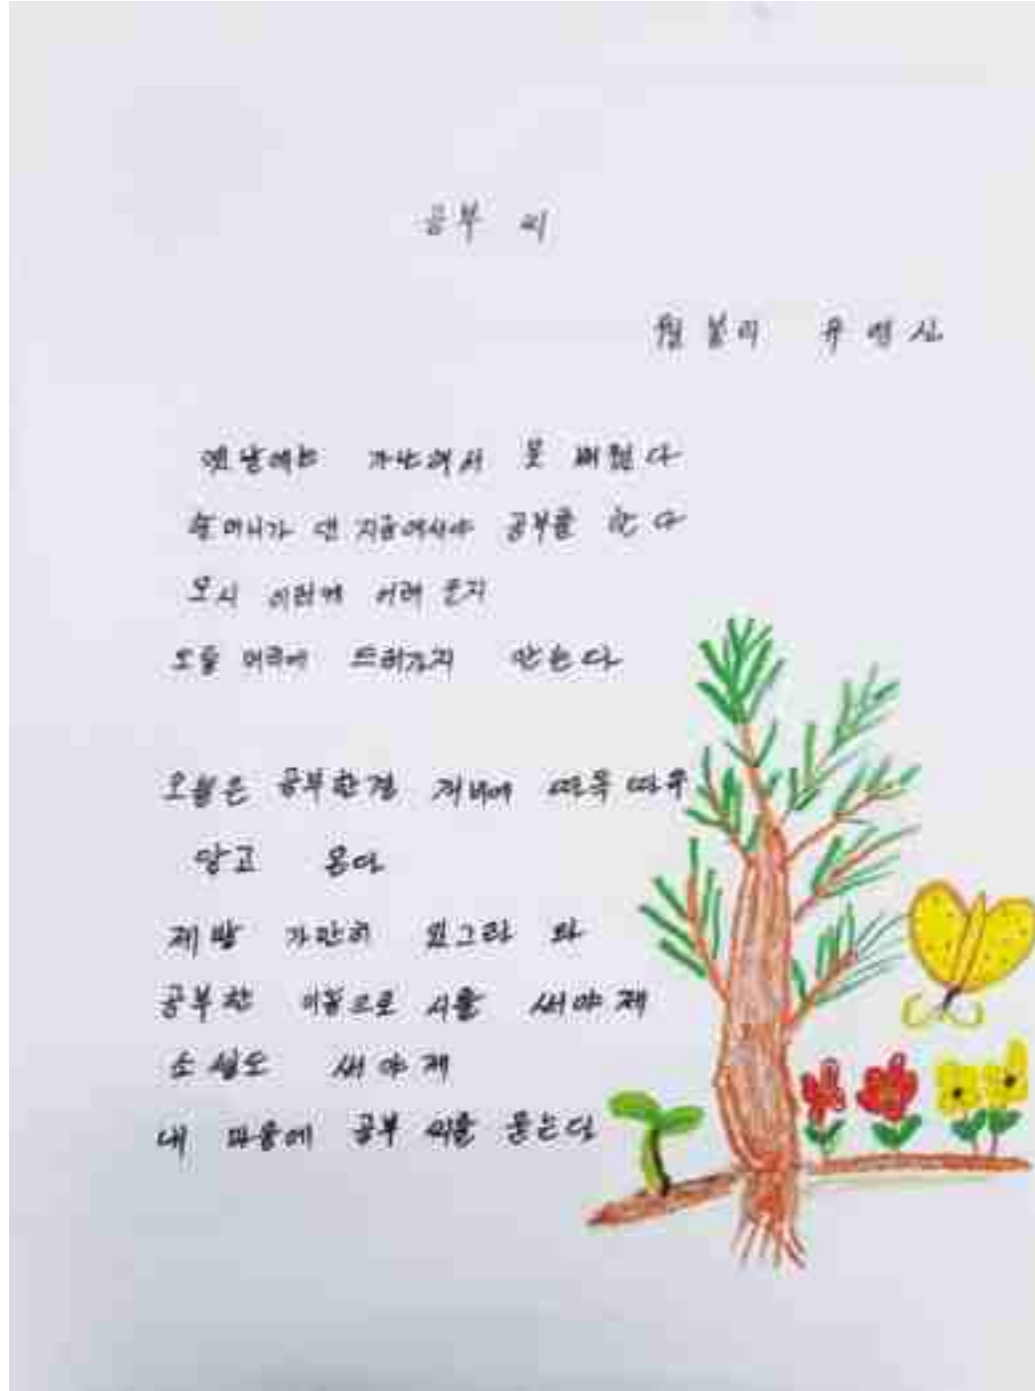 공부 씨
월봉리 유영신
옛날에는 가난해서 못 배웠다
할머니가 댄 지금에서야 공부를 한다
이렇게 어려 운지
드러가지 안는다
오늘은 공부한걸 저녀에 따옥 따옥
담고 온다
제발 가만히 있그라 와
공부한 이름으로 시를 써야제
소설도 써야제
내 마음에 공부 씨를 묻는다